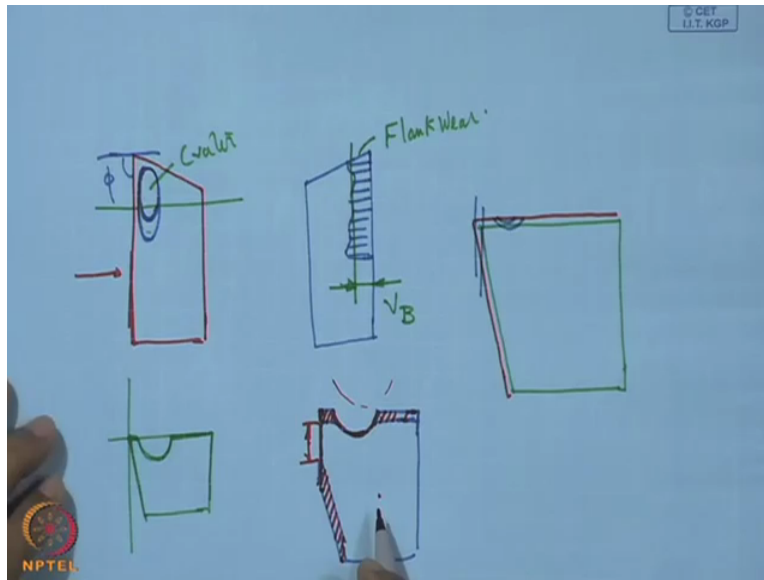 © CET
I.I.T. KGP
Crater
Flank Wear
φ
V_B
NPTEL